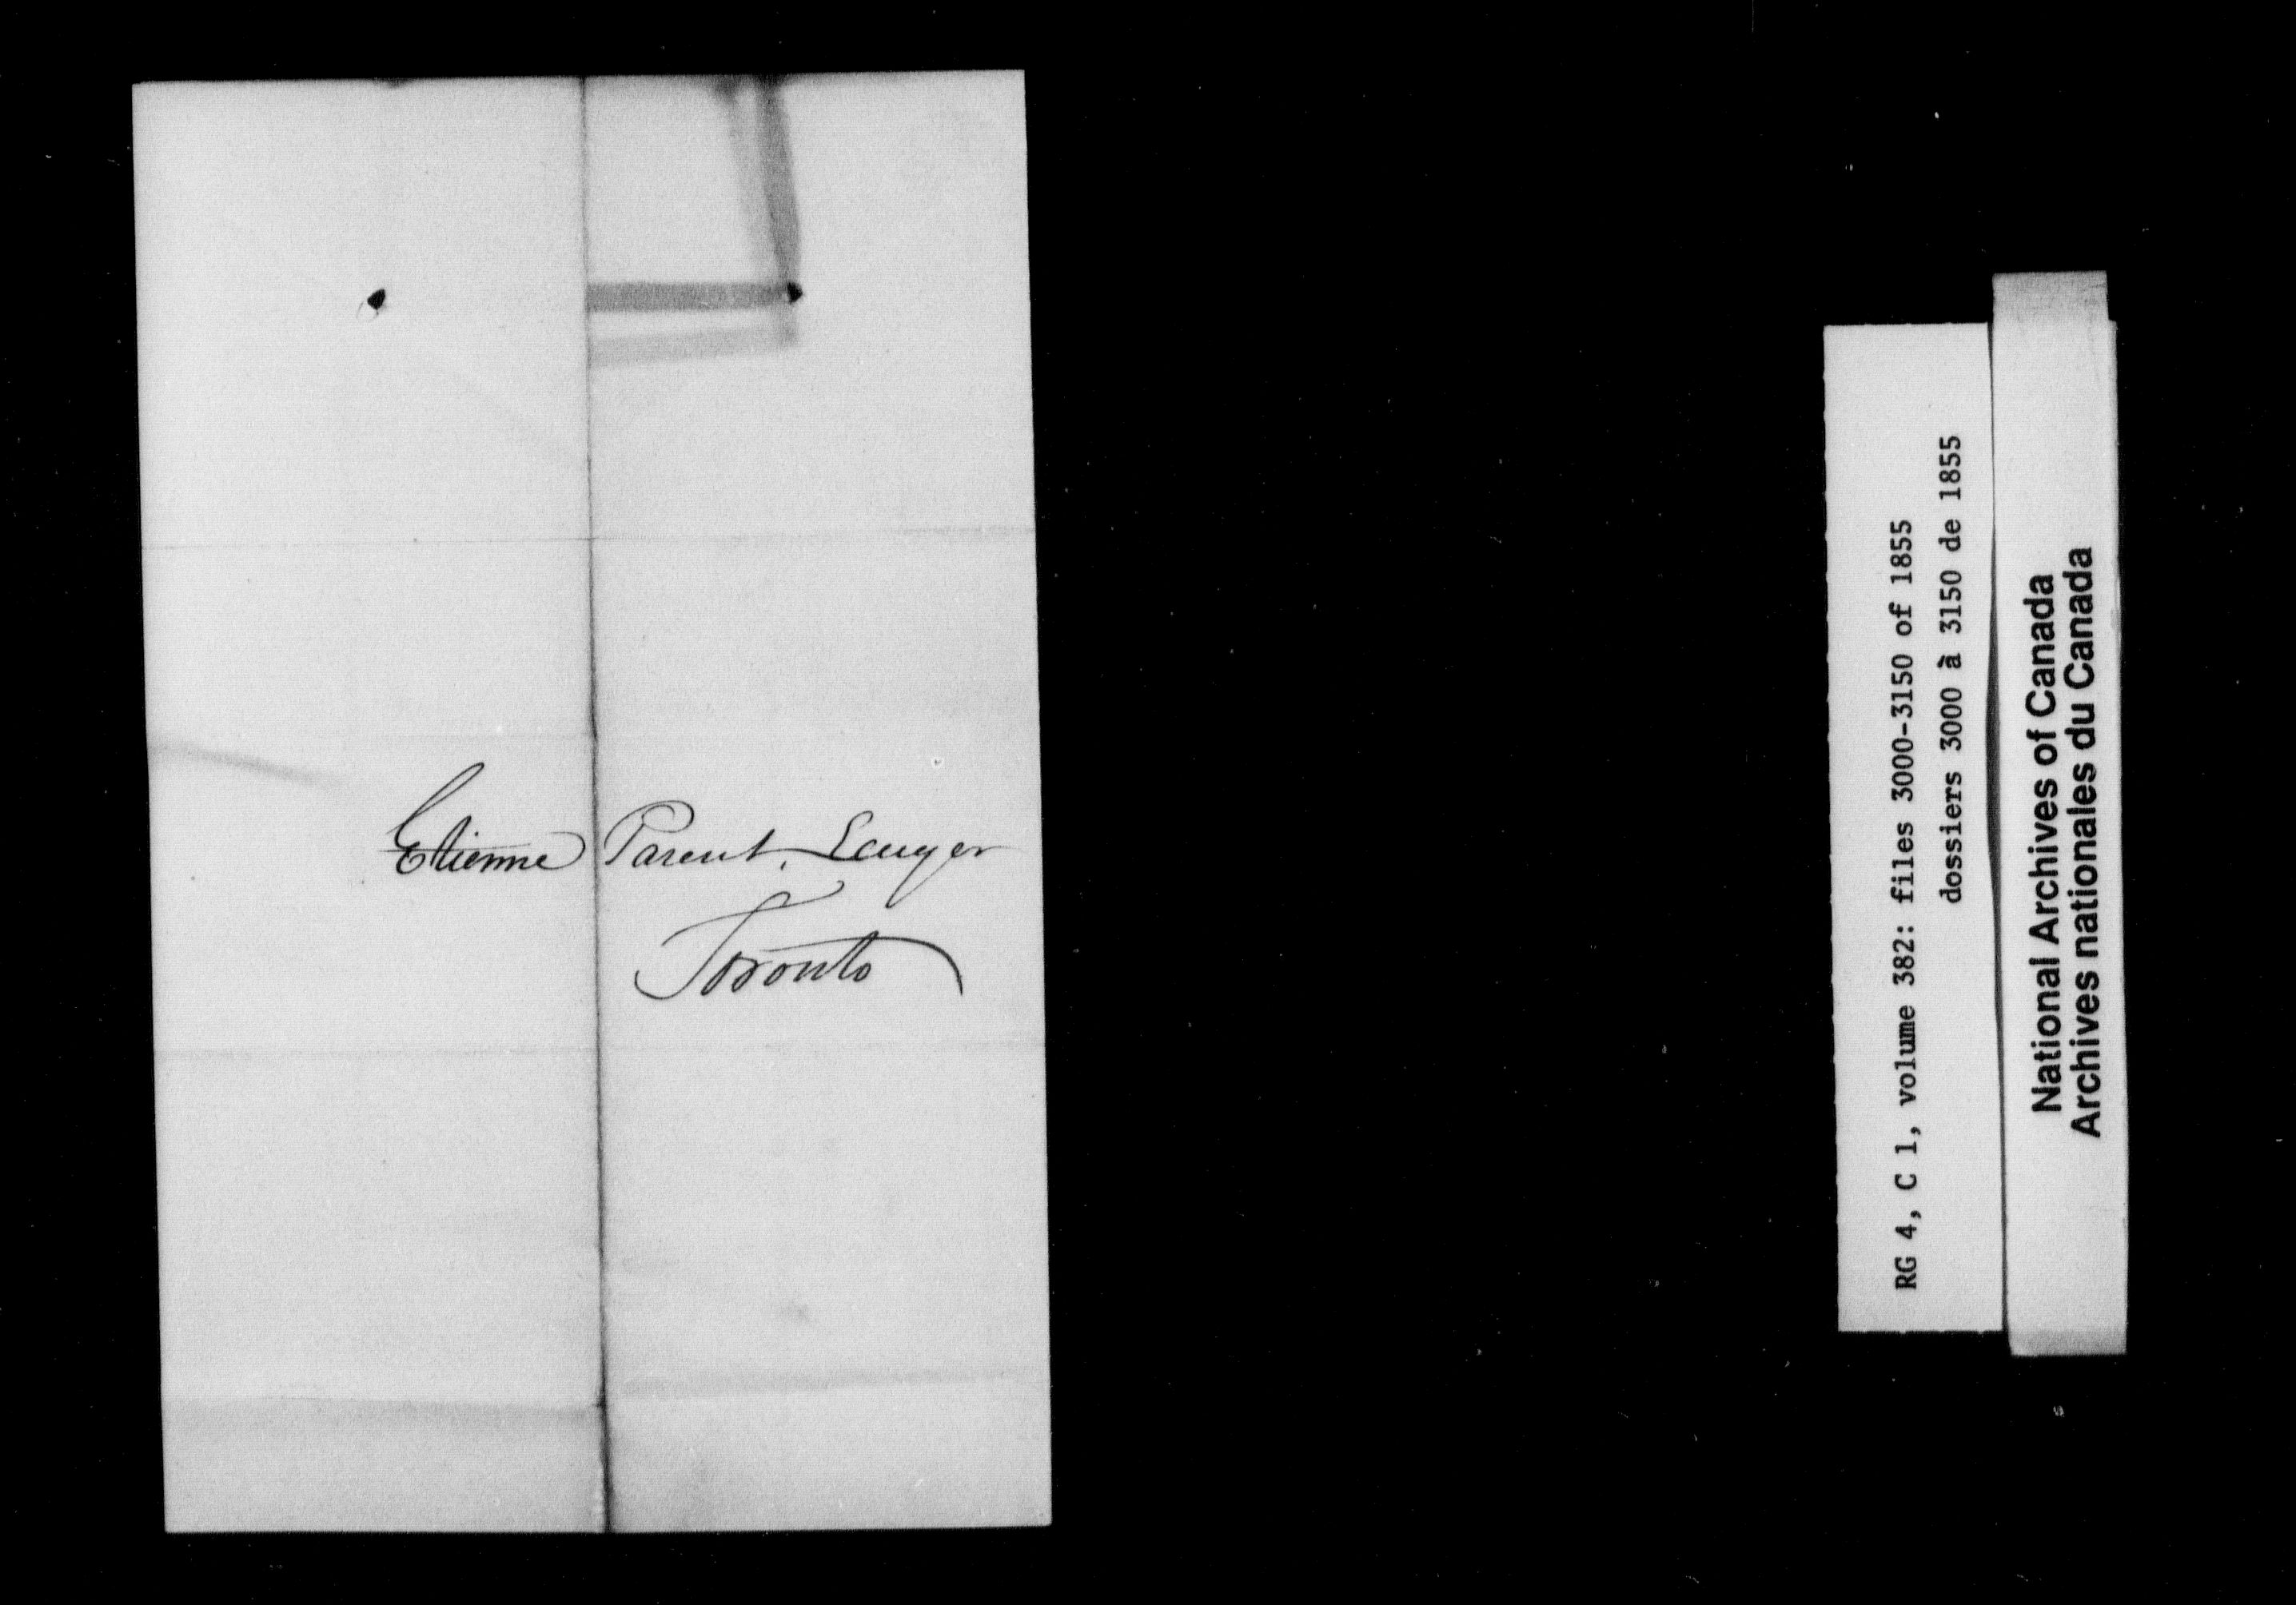 Etienne Parent,
Toronto
RG 4, C 1, volume 382: files 3000-3150 of 1855
dossiers 3000 à 3150 de 1855
National Archives of Canada
Archives nationales du Canada